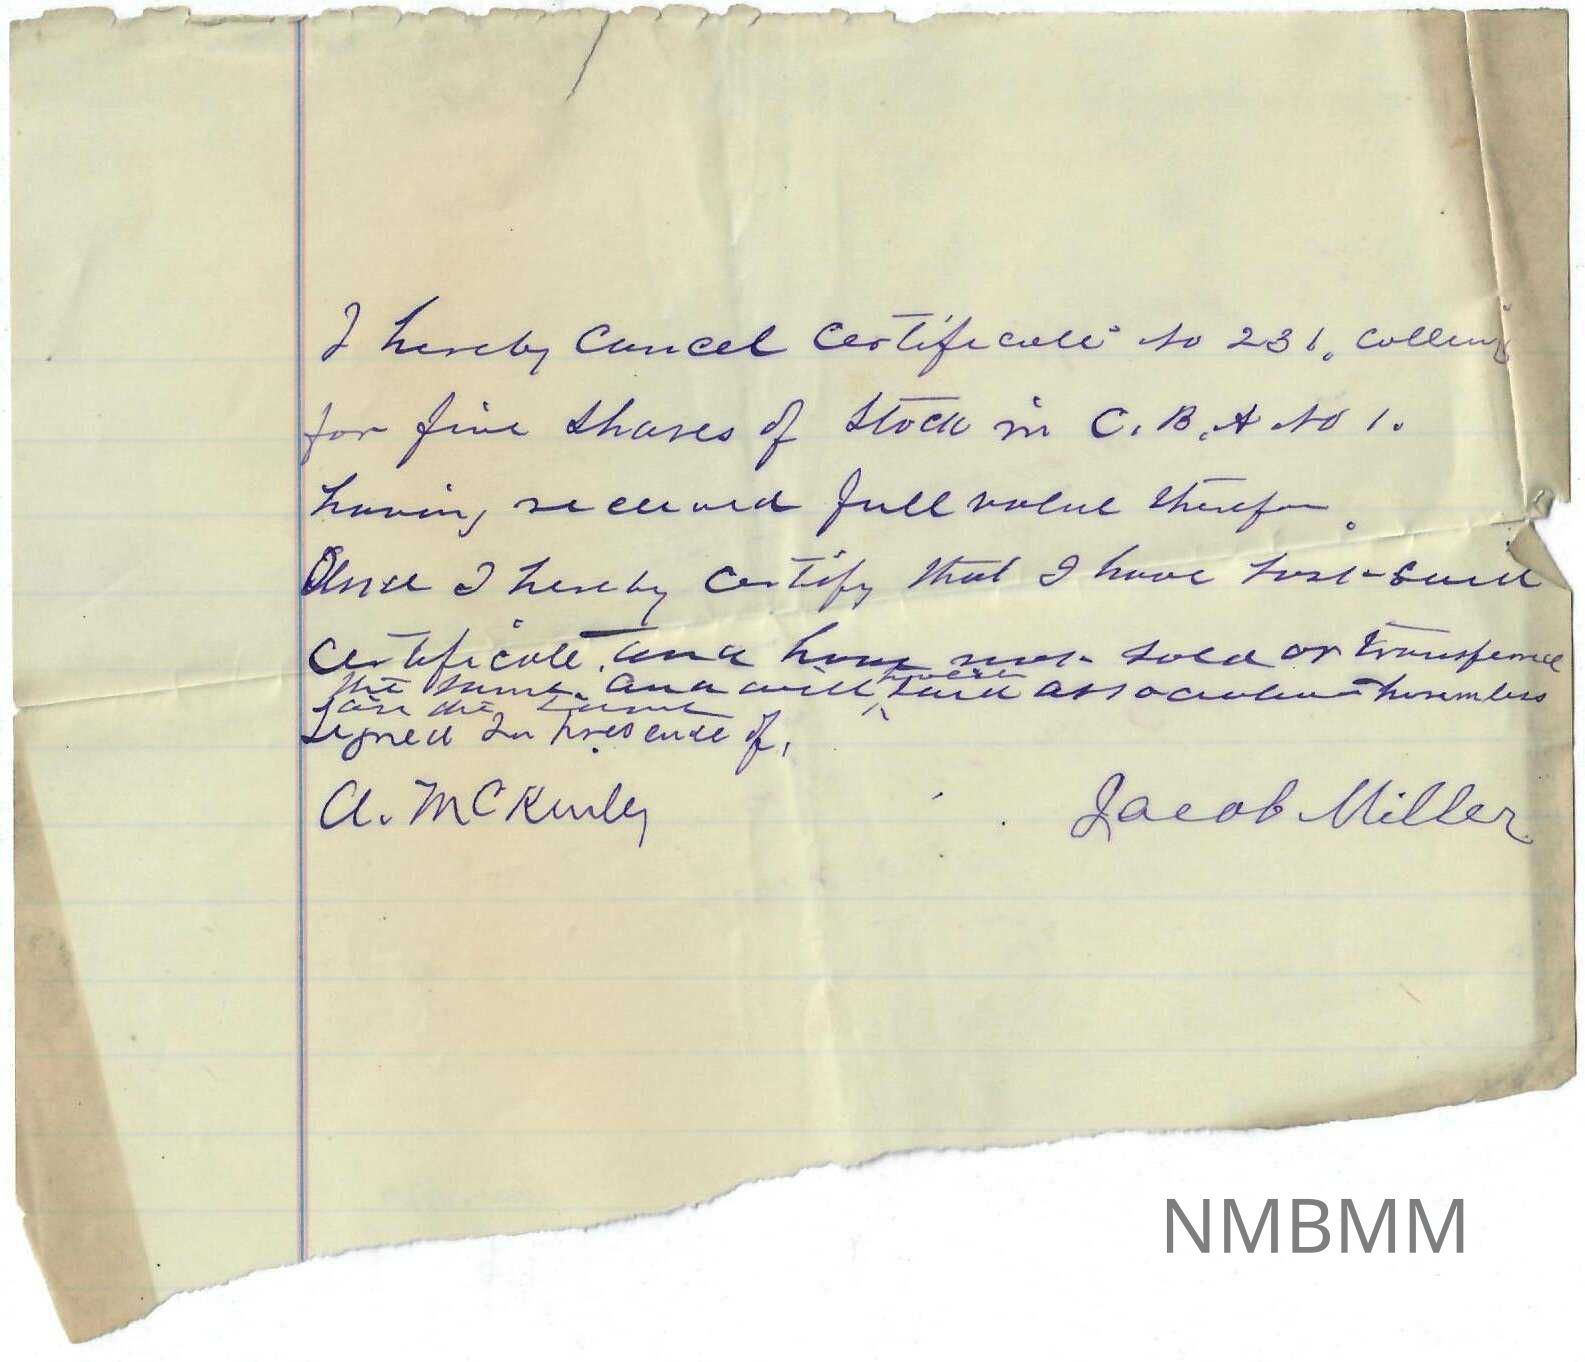 I hereby Cancel Certificate No 231. Calling
for five Shares of Stock in C. B. A No 1.
having received full value therefor.
And I hereby Certify that I have lost said
Certificate, and have not sold or transferred
the same. and will said association harmless
for the same
Signed In presence of,
A. McKinley
Jacob Miller
NMBMM